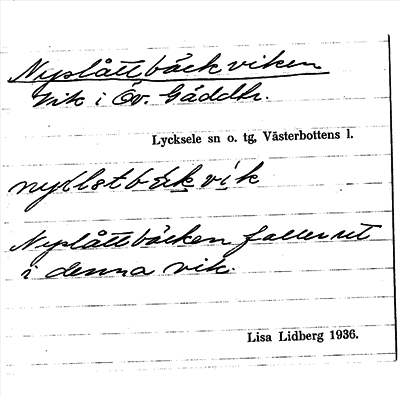 Nyslåttbäckviken
Vik i Öv. Gäddtr.
Lycksele sn o. tg, Västerbottens l.
Nyslåttbäcken faller ut
i denna vik.
Lisa Lidberg 1936.